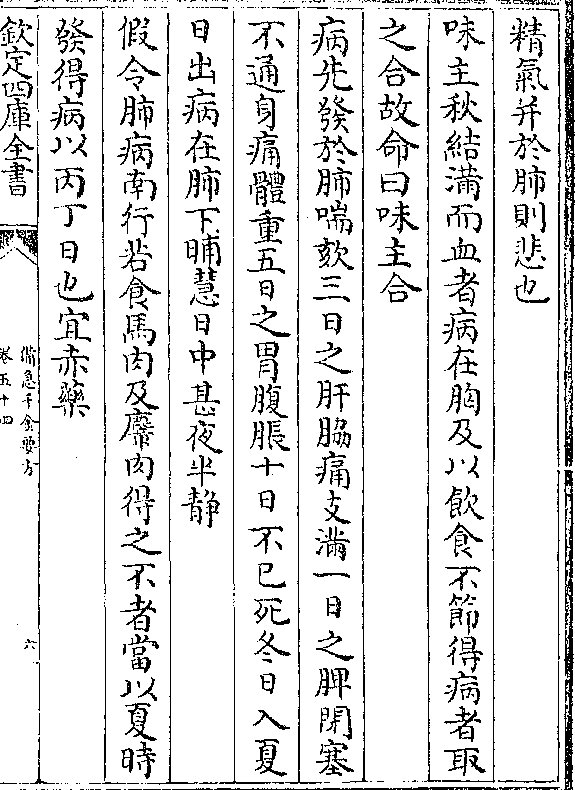 精氣并於肺則悲也
味主秋結滿而血者病在胸及以飲食不節得病者取
之合故命曰味主合
病先發於肺喘欬三日之肝脇痛支滿一日之脾閉塞
不通身痛體重五日之胃腹脹十日不已死冬日入夏
日出病在肺下晡慧日中甚夜半静
假令肺病南行若食馬肉及麞肉得之不者當以夏時
發得病以丙丁日也宜赤藥
欽定四庫全書
備急千金要方
卷五十四
六